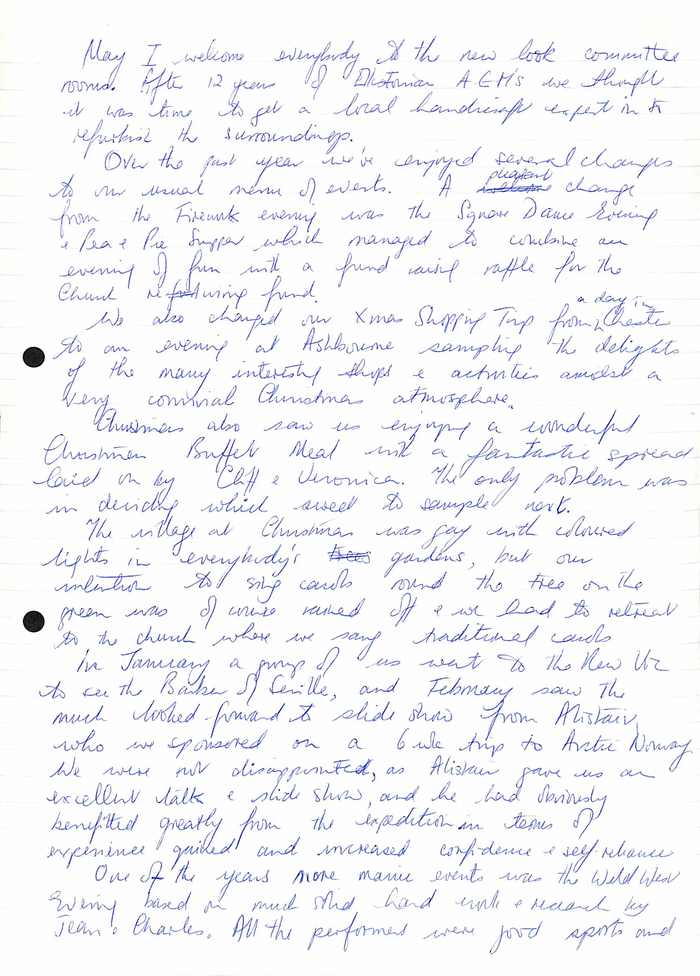 May I welcome everybody to the new look committee
rooms. After 12 years of A.G.M's we thought
it was time to get a local handicraft expert in to
refurbish the surroundings.
Over the past year we've enjoyed several changes
to our usual menu of events. A pleasant change
from the Firework evening was the Square Dance Evening
& Pea & Pie Supper which managed to combine an
evening of fun with a fund raising raffle for the
Church fund.
We also changed our Xmas Shopping Trip from a day in Chester
to an evening at Ashbourne sampling the delights
of the many interesting shops & activities amidst a
very convivial Christmas atmosphere.
Christmas also saw us enjoying a wonderful
Christmas Buffet Meal with a fantastic spread
laid on by Cliff & Veronica. The only problem was
in deciding which sweet to sample next.
The village at Christmas was gay with coloured
lights in everybody's trees gardens, but our
intention to sing carols round the tree on the
green was of course rained off & we had to retreat
to the church where we sang traditional carols
In January a group of us went to the New Vic
to see the Barber of Seville, and February saw the
much looked-forward to slide show from Alistair,
who we sponsored on a 6 wk trip to Arctic Norway.
We were not disappointed, as Alistair gave us an
excellent talk & slide show, and he had obviously
benefitted greatly from the expedition in terms of
experience gained and increased confidence & self-reliance
One of the years more manic events was the Wild West
Evening based on much solid hard work & research by
Jean & Charles. All the performers were good sports and